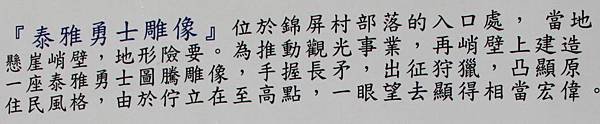 『泰雅勇士雕像』位於錦屏村部落的入口處，當地
懸崖峭壁，地形險要。為推動觀光事業，再峭壁上建造
一座泰雅勇士圖騰雕像，手握長矛，出征狩獵，凸顯原
住民風格，由於佇立在至高點，一眼望去顯得相當宏偉。